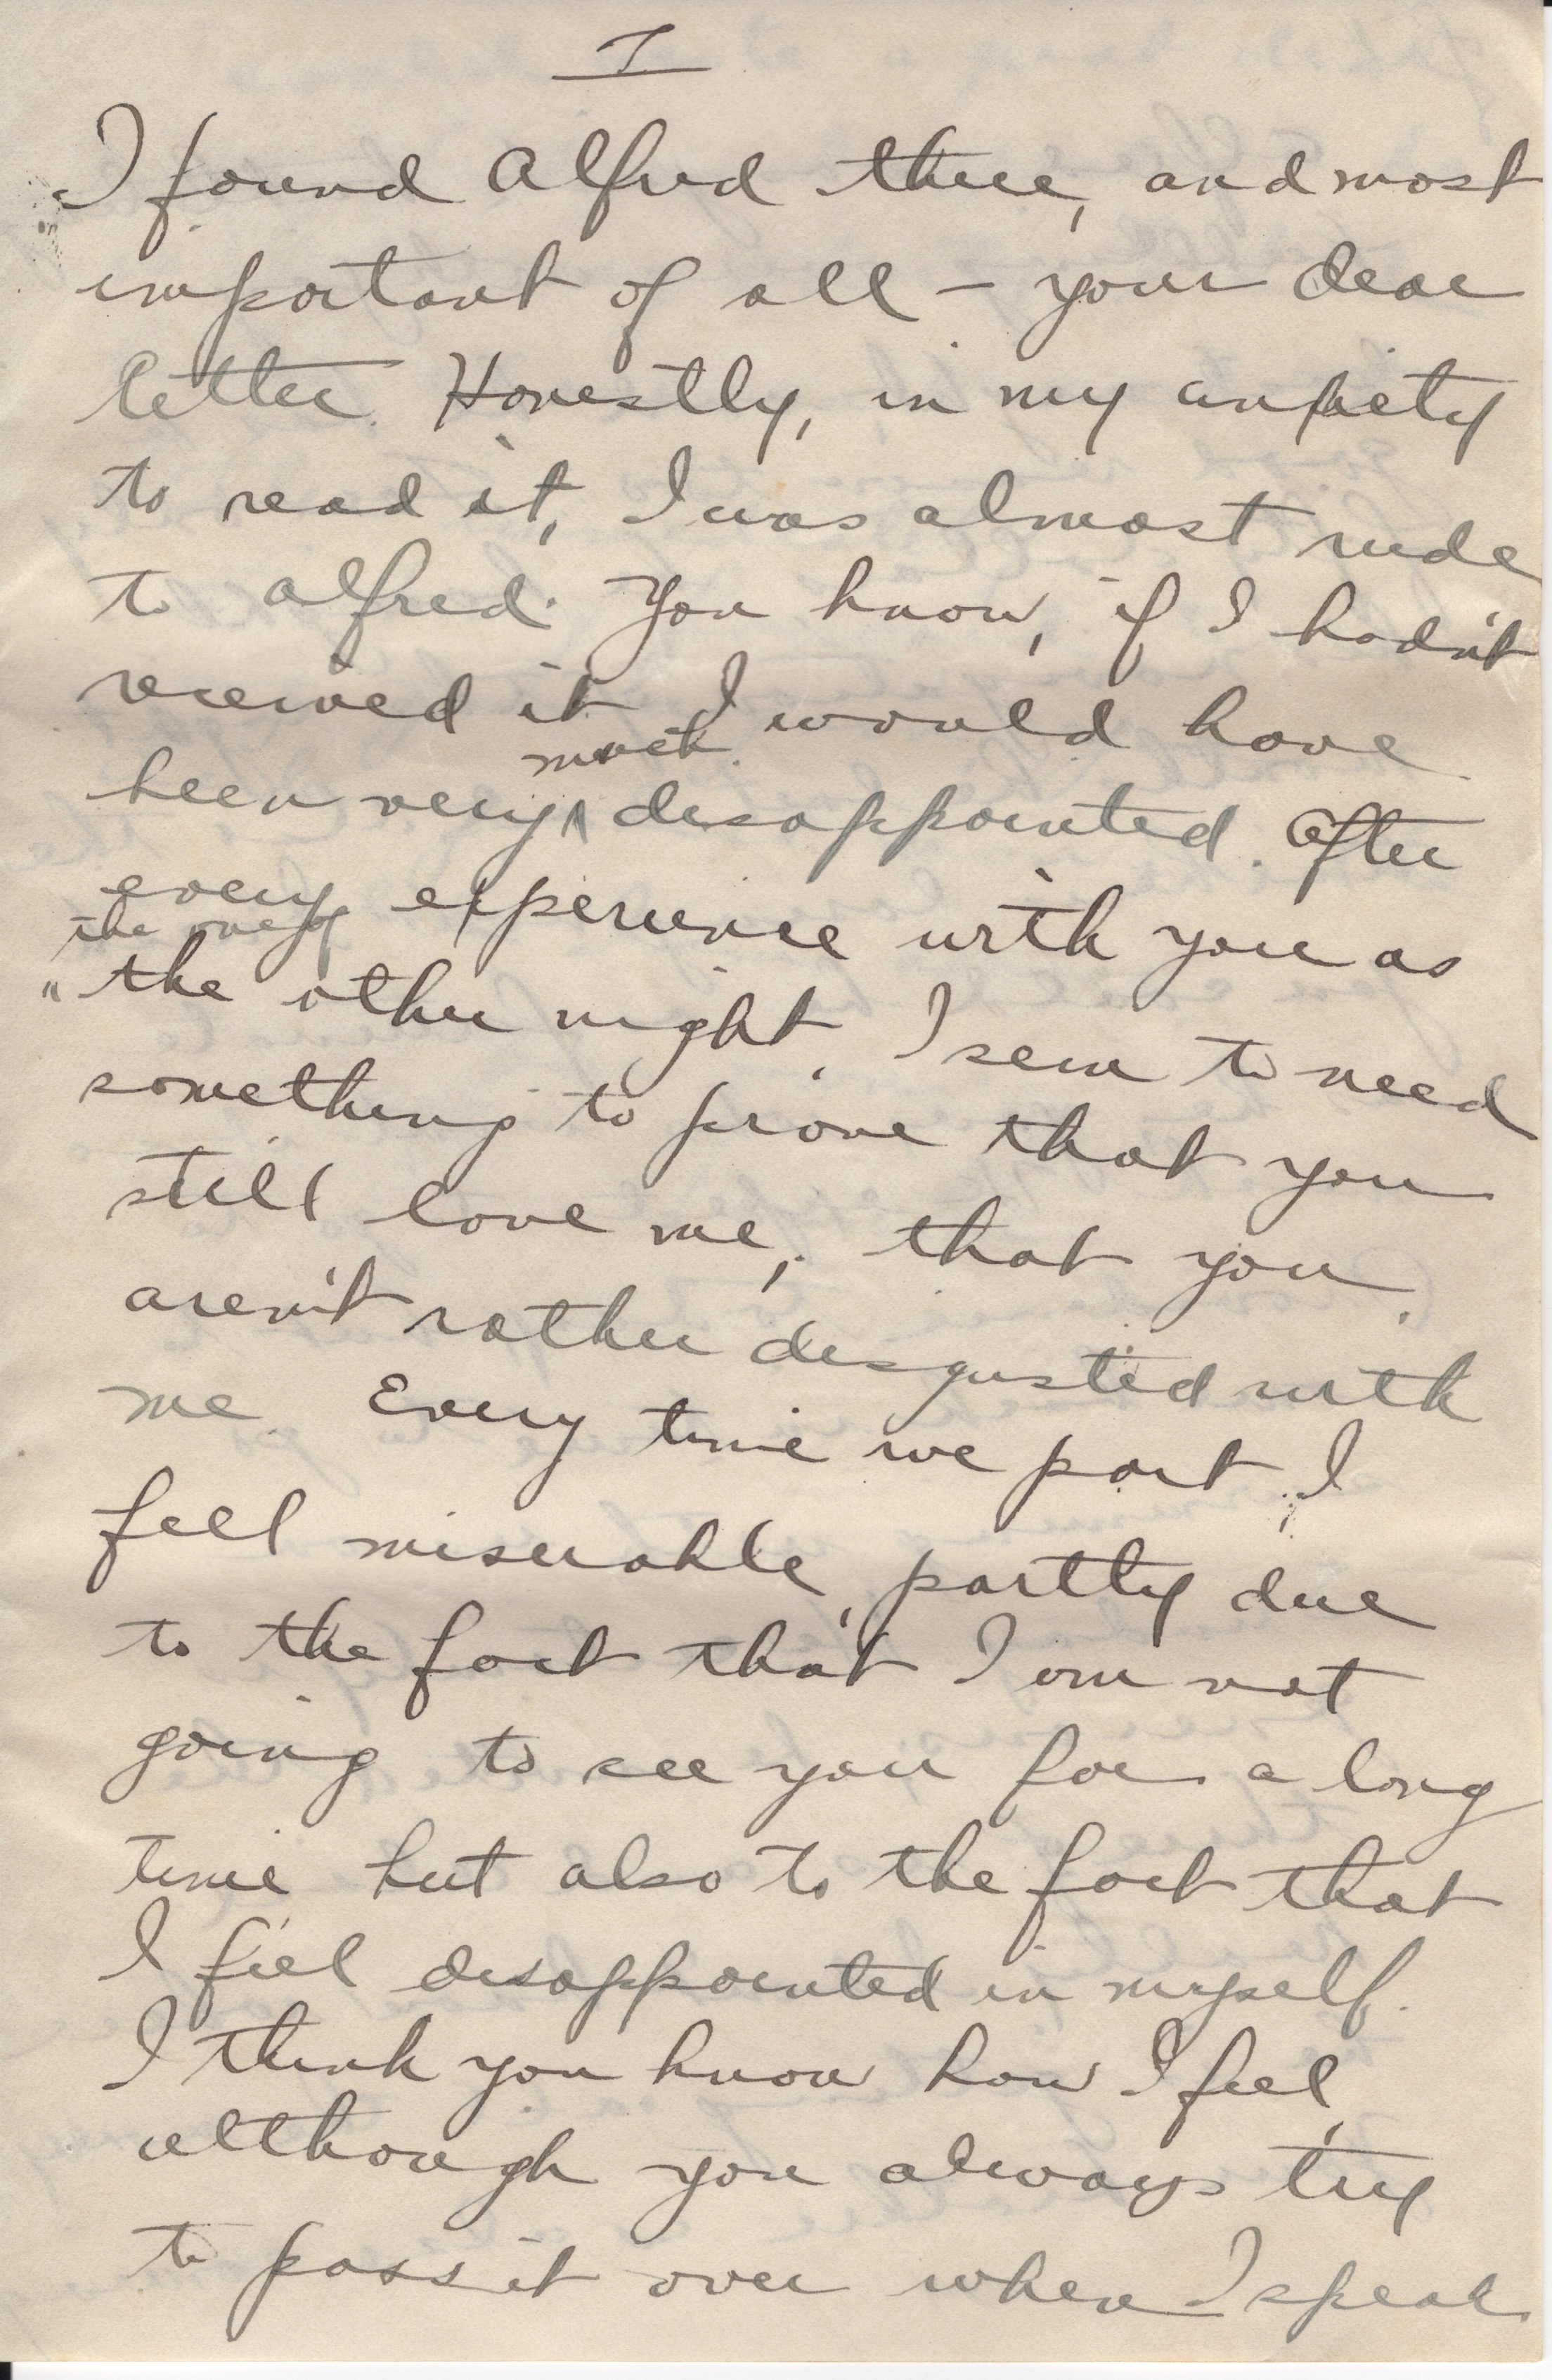 I
I found Alfred there, and most
important of all - your dear
letter. Honestly, in my anxiety
to read it, I was almost rude
to Alfred. You know, if I hadn't
received it I would have
much
been very ^ disappointed. After
every experience with you as
the one of
" the other night, I seem to need
something to prove that you
still love me, that you
aren't rather disgusted with
me. Every time we part, I
feel miserable, partly due
to the fact that I am not
going to see you for a long
time but also to the fact that
I feel disappointed in myself.
I think you know how I feel,
although you always try
to pass it over when I speak